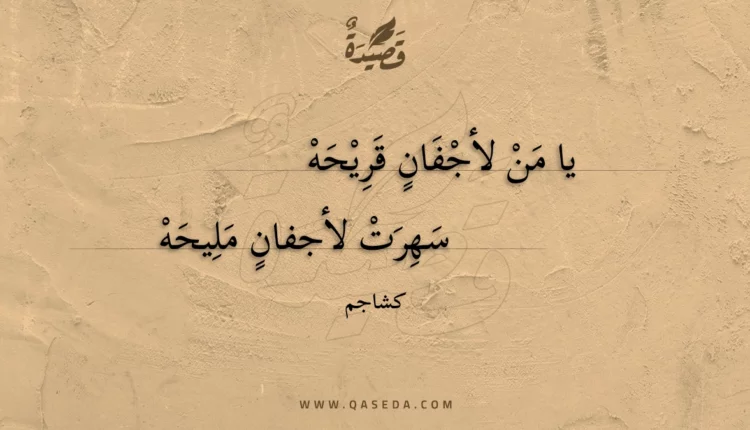 قَصِيْدَةٌ
يا مَنْ لأجْفَانٍ قَرِيْحَهْ
سَهِرَتْ لأجفانٍ مَلِيحَهْ
كشاجم
WWW.QASEDA.COM